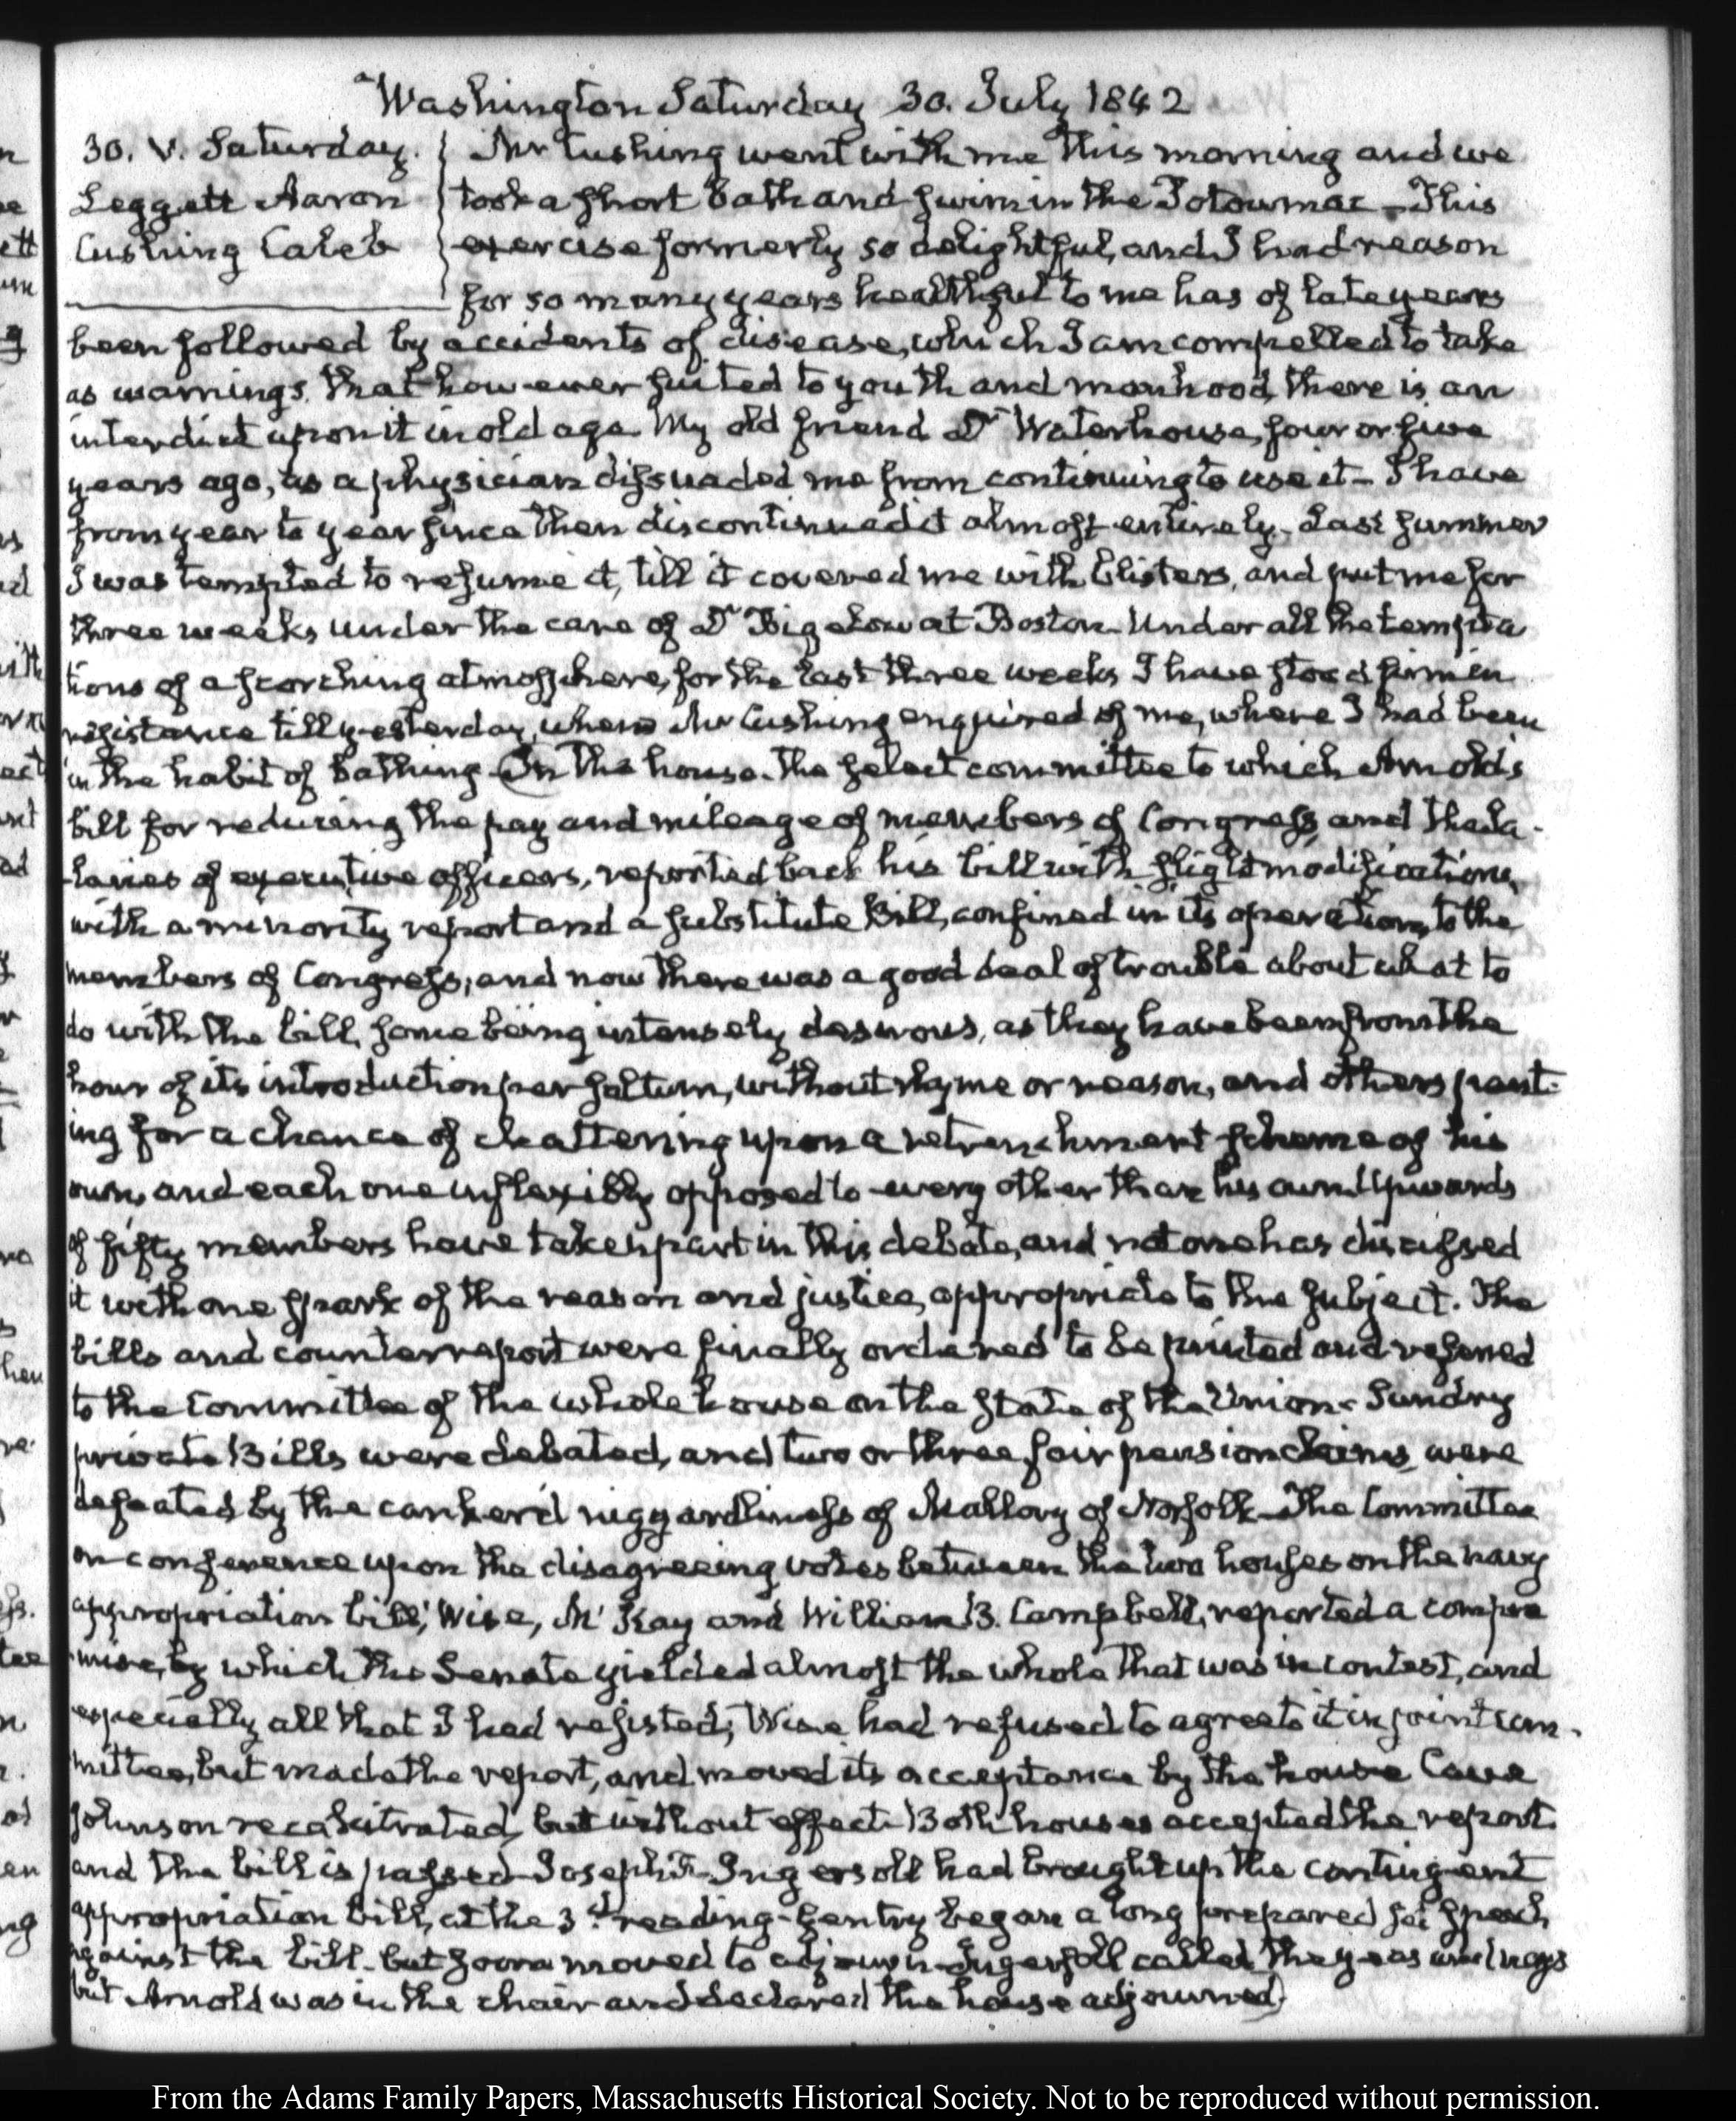 Washington Saturday 30. July 1842
30. V. Saturday.
Leggett Aaron
Cushing Caleb
Mr Cushing went with me this morning and we
took a short bath and swim in the Potowmac - This
exercise formerly so delightful, and I had reason
for so many years healthful to me has of late years
been followed by accidents of disease, which I am compelled to take
as warnings that however suited to youth and manhood, there is an
interdict upon it in old age. My old friend Dr Waterhouse, four or five
years ago, as a physician dissuaded me from continuing to use it - I have
from year to year since then discontinued it almost entirely - Last summer
I was tempted to resume it, till it covered me with blisters, and put me for
three weeks under the care of Dr Bigelow at Boston. Under all the tempta
tions of a scorching atmosphere, for the last three weeks I have stood firm in
resistance till yesterday, when Mr Cushing enquired of me, where I had been
in the habit of bathing - In the house. The select committee to which Arnold's
bill for reducing the pay and mileage of members of Congress and the sa-
-laries of executive officers, reported back his bill with slight modifications,
with a minority report and a substitute Bill, confined in its operation, to the
members of Congress; and now there was a good deal of trouble about what to
do with the bill, some being intensely desirous, as they have been from the
hour of its introduction per saltum, without rhyme or reason, and others pant-
ing for a chance of chattering upon a retrenchment scheme of his
own, and each one inflexibly opposed to every other than his own. Upwards
of fifty members have taken part in this debate, and not one has discussed
it with one spark of the reason and justice, appropriate to the subject. The
bills and counter report were finally ordered to be printed and referred
to the Committee of the whole house on the state of the Union - Sundry
private Bills were debated, and two or three fair pension claims, were
defeated by the canker'd niggardliness of Mallory of Norfolk - The Committee
on conference upon the disagreeing votes between the two houses on the navy
appropriation bill, Wise, Mc Kay and William B. Campbell, reported a compro
mise, by which the Senate yielded almost the whole that was in contest, and
especially all that I had resisted; Wise had refused to agree to it in joint com-
mittee, but made the report, and moved its acceptance by the house Cave
Johnson recalcitrated, but without effect. Both houses accepted the report.
and the bill is passed - Joseph R. Ingersoll had brought up the contingent
appropriation bill, at the 3d reading - Gentry began a long prepared set speech
against the bill - but soon moved to adjourn - Ingersoll called the yeas and nays
but Arnold was in the chair and declared the house adjourned)
From the Adams Family Papers, Massachusetts Historical Society. Not to be reproduced without permission.